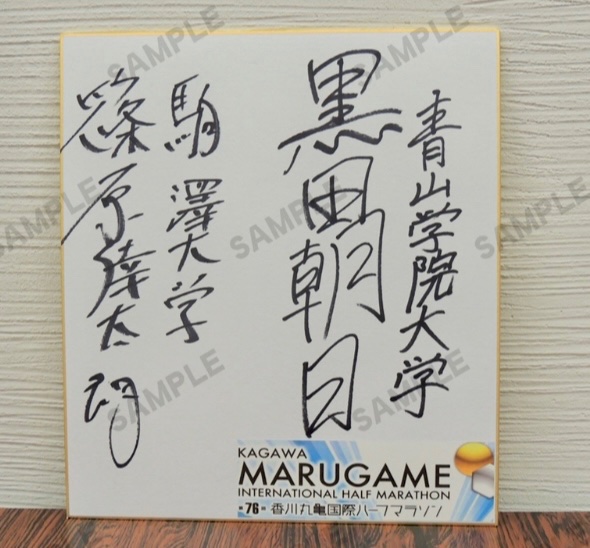 青山学院大学
黒田朝日
駒澤大学
篠原倖太朗
KAGAWA
MARUGAME
INTERNATIONAL HALF MARATHON
第76回 香川丸亀国際ハーフマラソン
SAMPLE
SAMPLE
SAMPLE
SAMPLE
SAMPLE
SAMPLE
SAMPLE